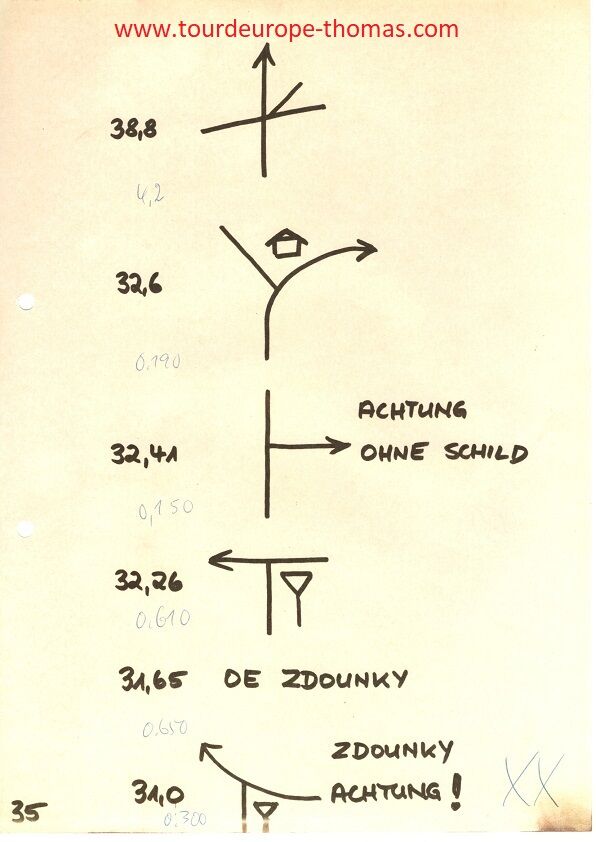 www.tourdeurope-thomas.com
38,8
4,2
32,6
0.190
ACHTUNG
32,41 OHNE SCHILD
0,150
32,26
0.610
31,65 OE ZDOUNKY
0.650
ZDOUNKY
31,0 ACHTUNG!
XX
0.300
35